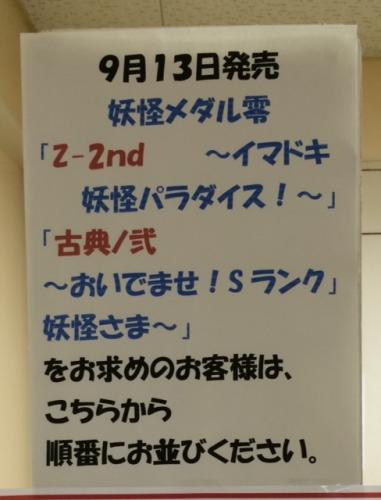 9月13日発売
妖怪メダル零
「Z-2nd　　～イマドキ
妖怪パラダイス！～」
「古典ノ弐
～おいでませ！Sランク」
妖怪さま～」
をお求めのお客様は、
こちらから
順番にお並びください。